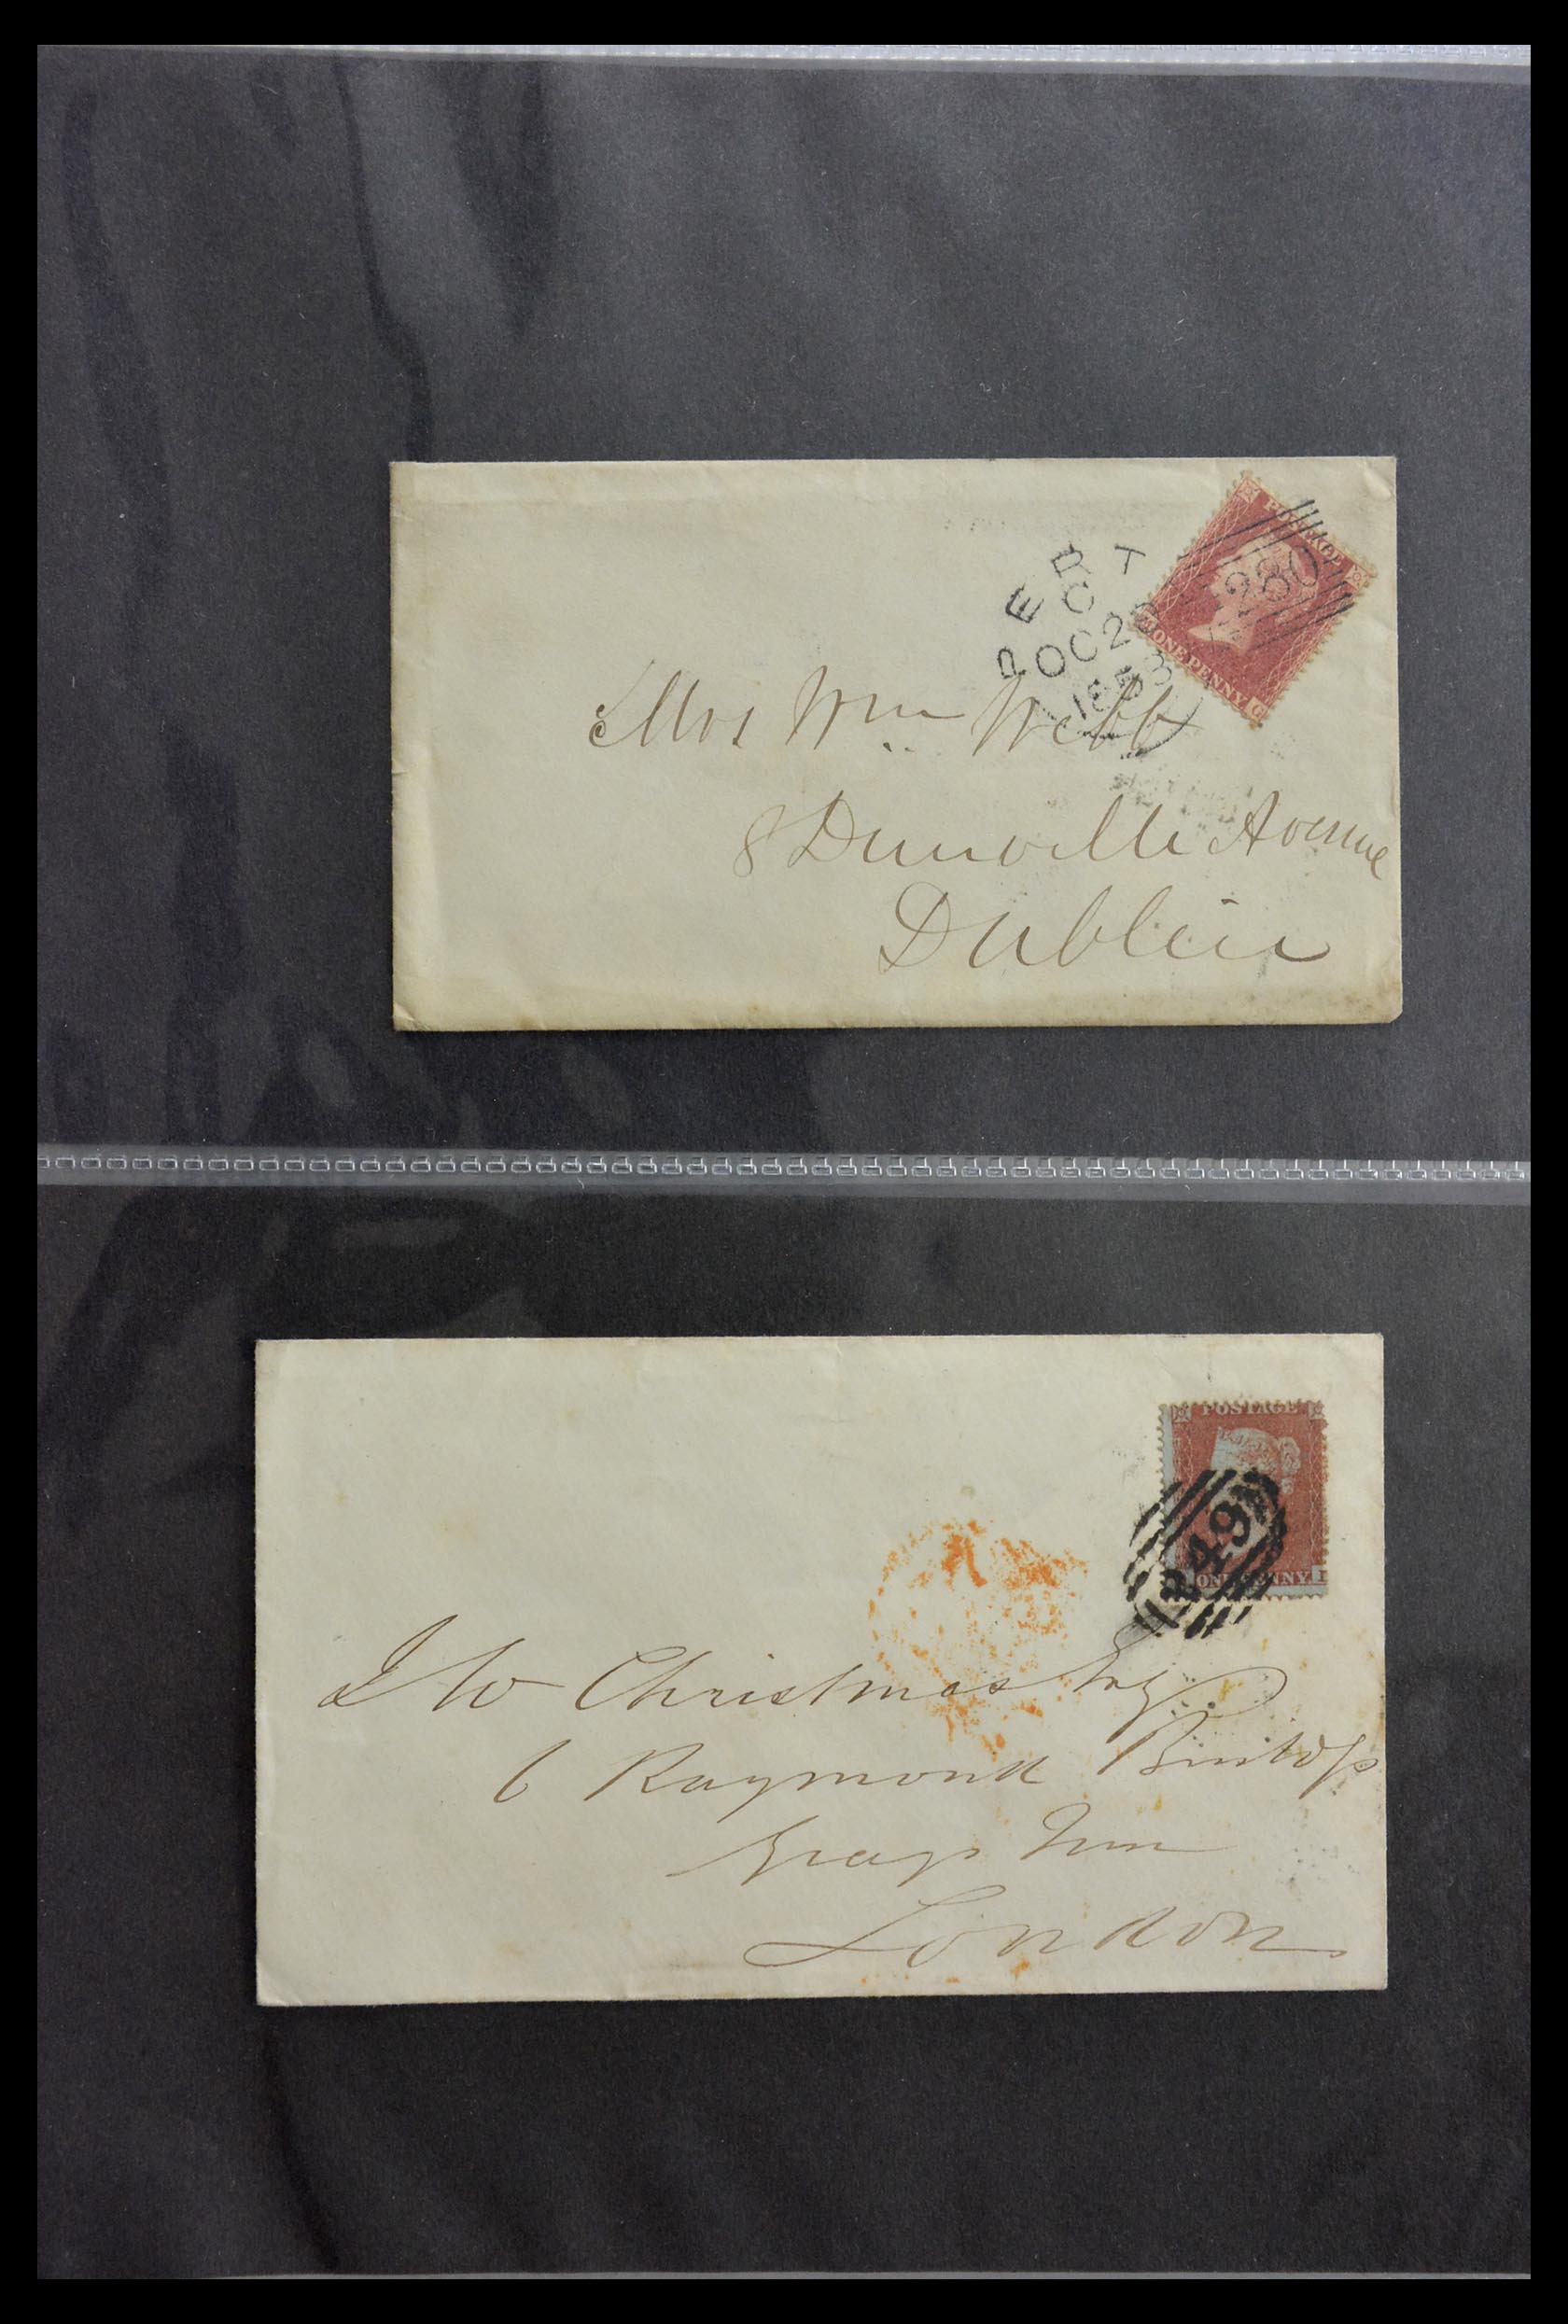 POSTAGE
280
ONE PENNY
G
C
OC 2
185
Mrs Wm Webb
8 Dunville Avenue
Dublin
POSTAGE
249
ONE PENNY
J W Christmas Esq
6 Raymond Buildgs
Grays Inn
London